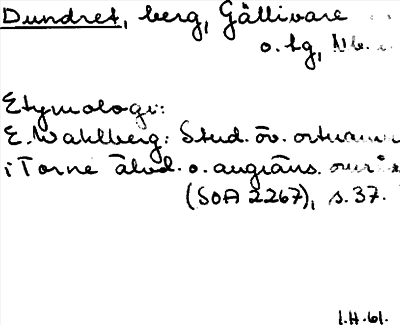 Dundret, berg, Gällivare
o. lg, Nb.
Etymologi:
E. Wahlberg: Stud. öv. ortnamn
i Torne älvd. o. angräns. omr
(SOA 2267), s. 37.
I.H. 61.